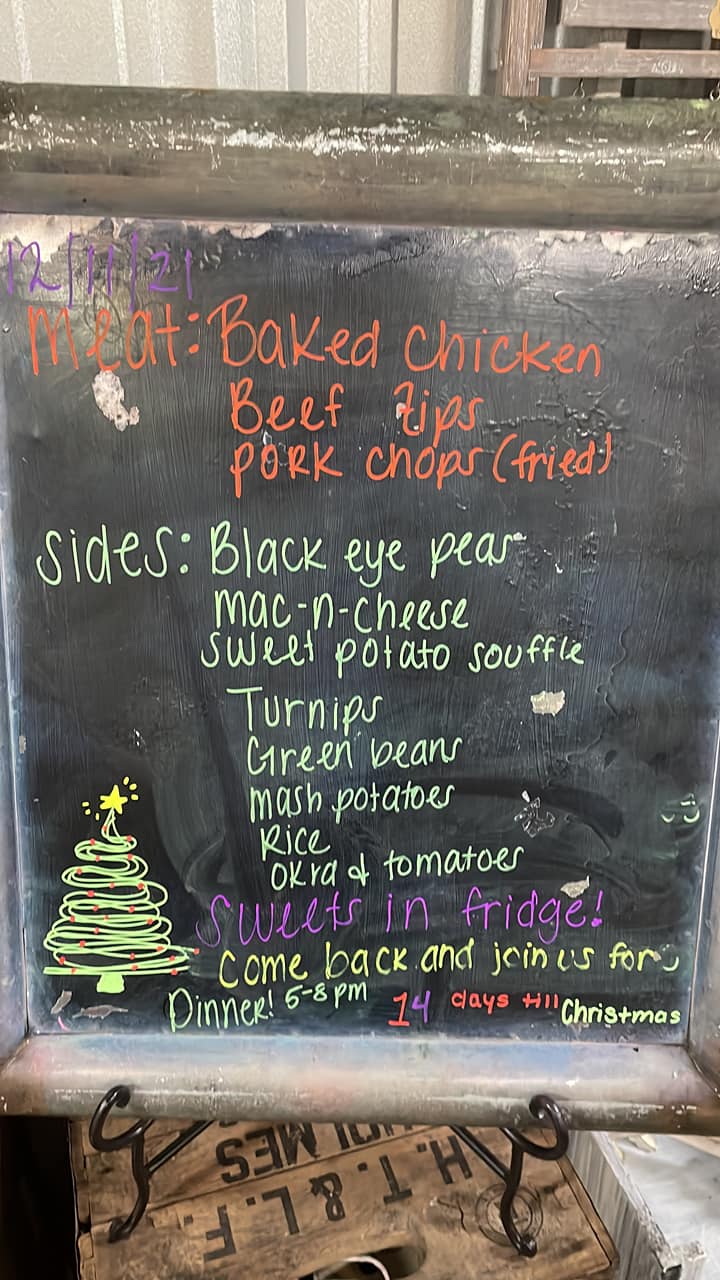 12/11/21
meat: Baked chicken
Beef tips
PORK chops (fried)
Sides: Black eye peas
mac-n-cheese
sweet potato souffle
Turnips
Green beans
mash potatoes
Rice
Okra & tomatoes
Sweets in fridge!
Come back and join us for
Dinner! 5-8 pm 14 days till Christmas
H.T. & L.F.
OLMES